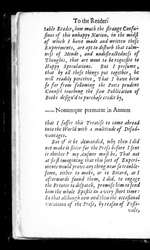 To the Reader:
table Reader, how much the strange Confusi-
ons of this unhappy Nation, in the midst
of which I have made and written these
Experiments, are apt to disturb that calm-
ness of Mind, and undistractedness of
Thoughts, that are wont to be requisite to
Happy Speculations. But I presume,
that by all these things put together, he
will readily perceive, That I have been
so far from following the Poets prudent
Counsel touching the slow Publication of
Books design'd to purchase credit by,
—Nonumque prematur in Annum
that I suffer this Treatise to come abroad
into the World with a multitude of Disad-
vantages.
But if it be demanded, why then I did
not make it fitter for the Press before I sent
to
answer must be, That not
at first imagining that this sort of Experi-
ments would prove any thing near so trouble-
some, either to make, or to Record, as I
afterwards found them, I did, to engage
the Printer to dispatch, promise him to send
him the whole Epistle in a very short time:
So that although now and then the occasional
Vacations of the Press, by reason of Festi-
vals,